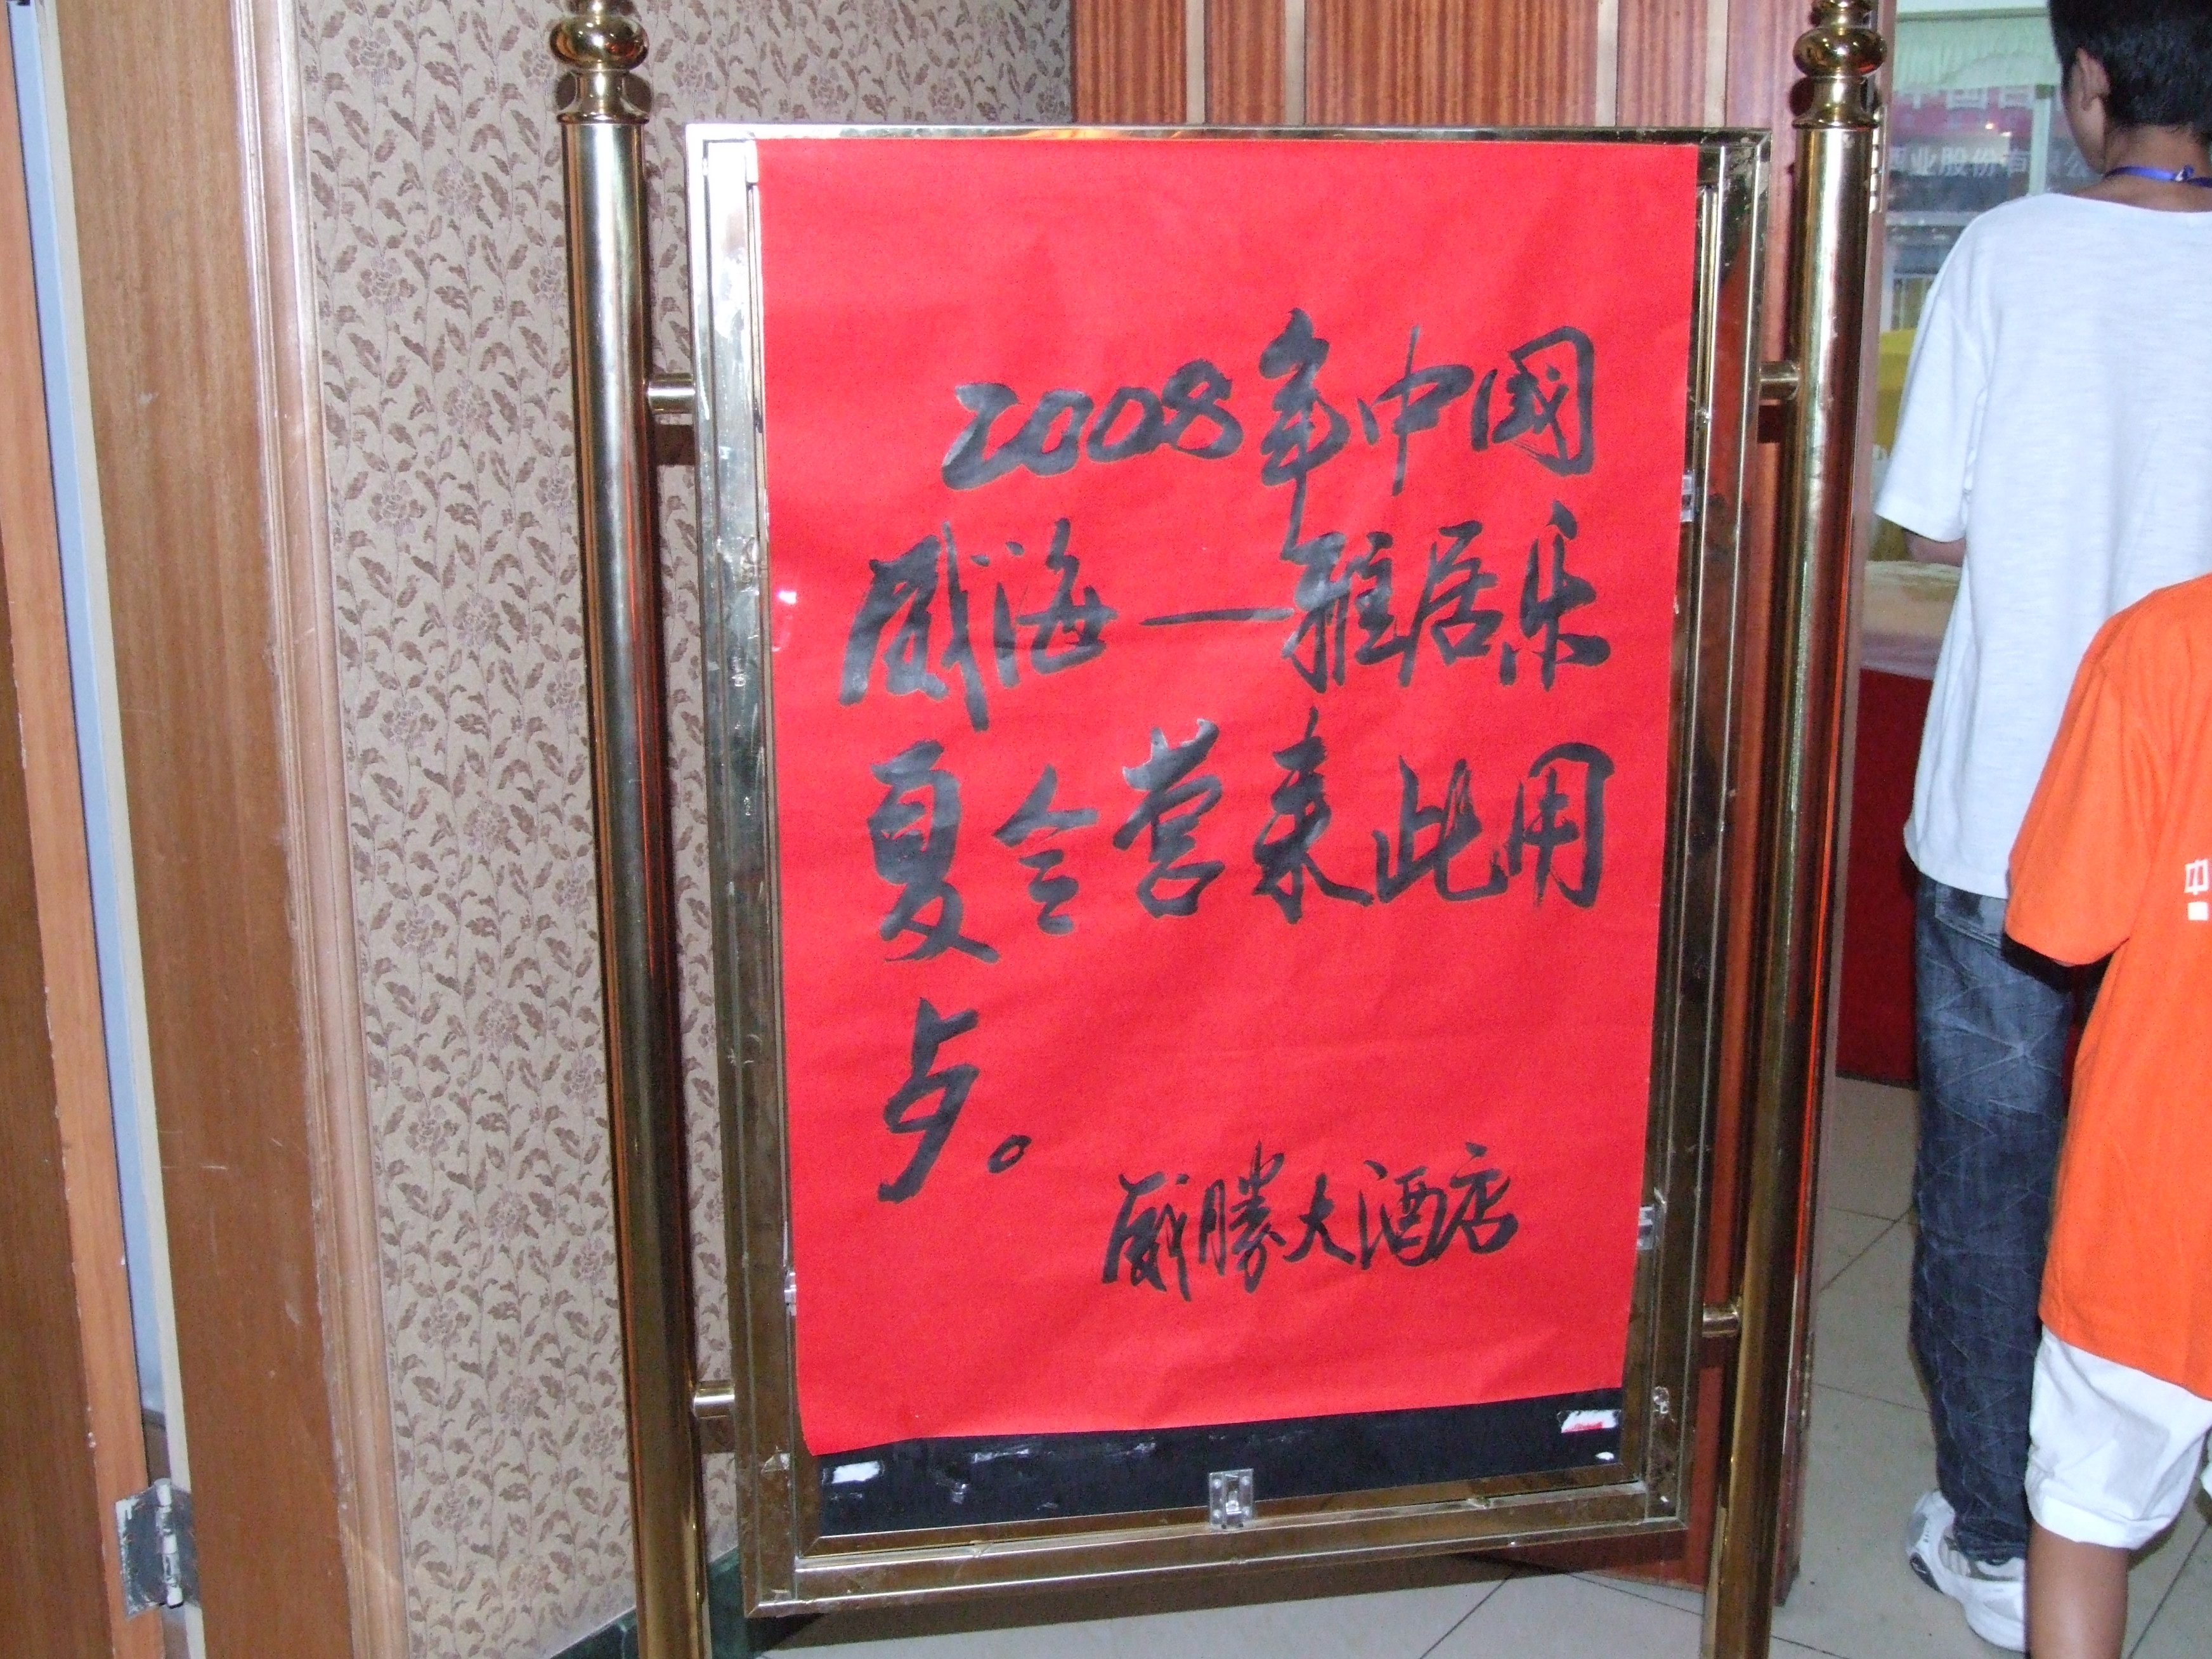 2008年中國
威海—雅居乐
夏令营来此用
歺。
威勝大酒店
业股份有
中